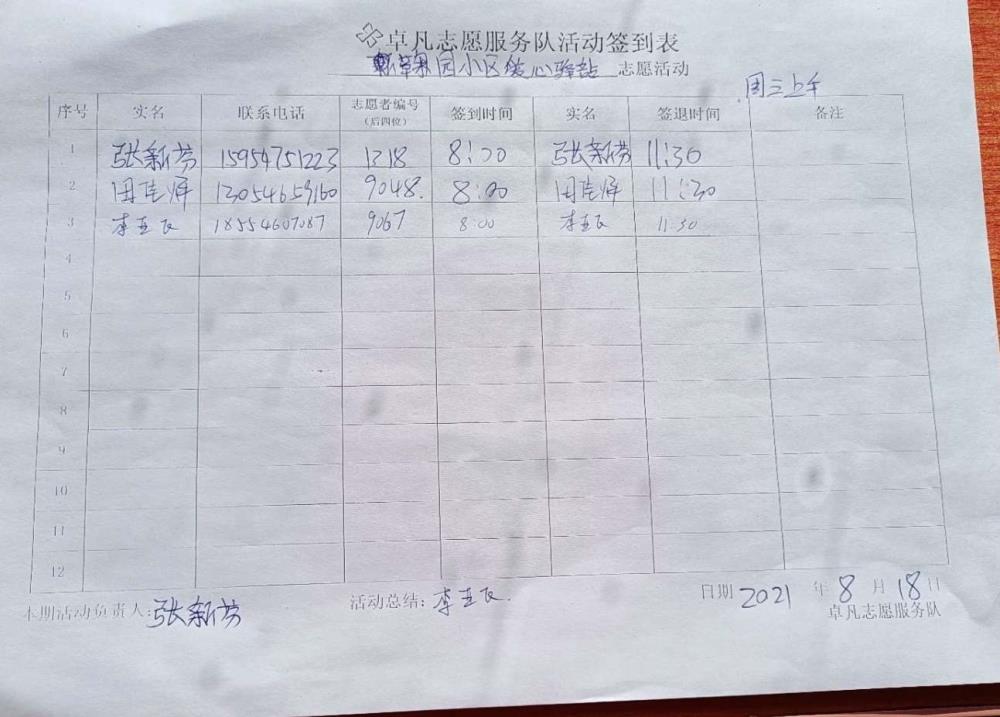 卓凡志愿服务队活动签到表
苹果园小区爱心驿站 志愿活动
周三上午
序号 实名 联系电话 志愿者编号（后四位） 签到时间 实名 签退时间 备注
1 张新芬 15954751223 1318 8:00 张新芬 11:30
2 田佳 13054659160 9048. 8:00 田佳 11:30
3 李 18554607087 9067 8:00 李 11:30
4
5
6
7
8
9
10
11
12
本期活动负责人:张新芬 活动总结: 李 日期 2021 年 8 月 18 日
卓凡志愿服务队